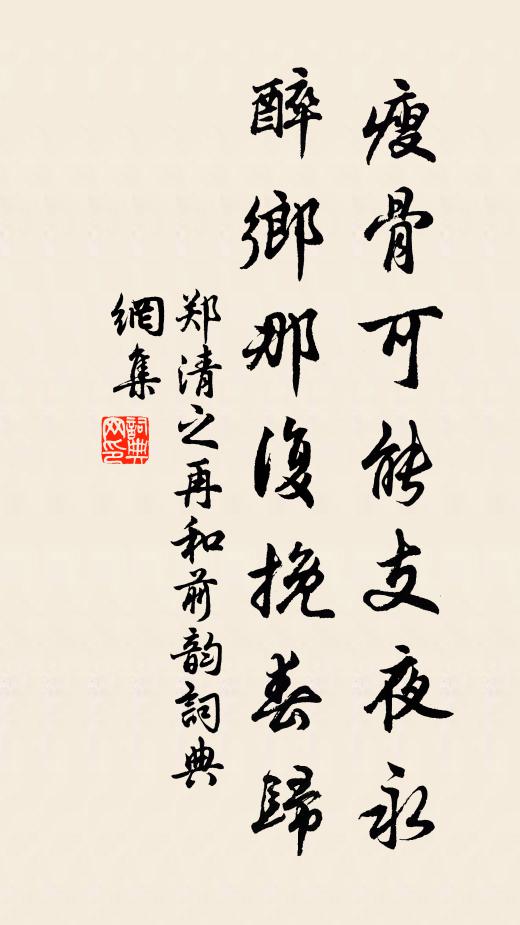 瘦骨可能支夜永
醉鄉那復挽春歸
郑清之再和前韵詞典
網集
詞典
网印